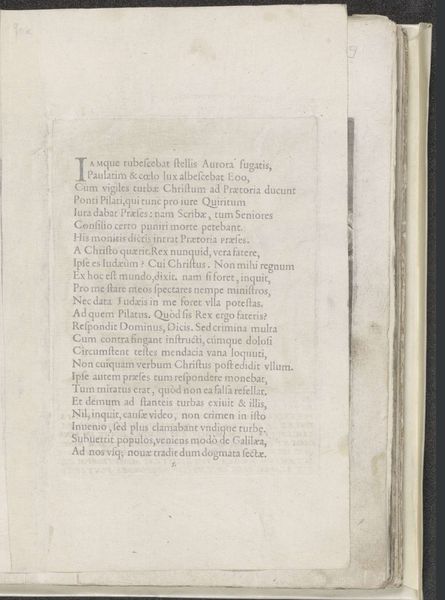 IAMque rubeſcebat ſtellis Aurora fugatis,
Paulatim & cœlo lux albeſcebat Eoo,
Cùm vigiles turbæ Chriſtum ad Prætoria ducunt
Ponti Pilati, qui tunc pro iure Quiritum
Iura dabat Præſes: nam Scribæ, tum Seniores
Conſilio certo puniri morte petebant.
His monitis dictis intrat Prætoria præſes.
A Chriſto quærit. Rex nunquid, vera fatere,
Ipſe es Iudæûm? Cui Chriſtus. Non mihi regnum
Ex hoc eſt mundo, dixit. nam ſi foret, inquit,
Pro me ſtare meos ſpectares nempe miniſtros,
Nec data Iudæis in me foret vlla poteſtas.
Ad quem Pilatus. Quòd ſis Rex ergo fateris?
Reſpondit Dominus, Dicis. Sed crimina multa
Cùm contra fingant inſtructi, cùmque doloſi
Circumſtent teſtes mendacia vana loquuti,
Non cuiquam verbum Chriſtus poſt edidit vllum.
Ipſe autem præſes tum reſpondere monebat,
Tum miratus erat, quòd non ea falſa refellat.
Et demum ad ſtanteis turbas exiuit & illis,
Nil, inquit, cauſæ video, non crimen in iſto
Inuenio, ſed plus clamabant vndique turbę.
Subuertit populos, veniens modò de Galilæa,
Ad nos vſq; nouæ tradit dum dogmata ſectæ.